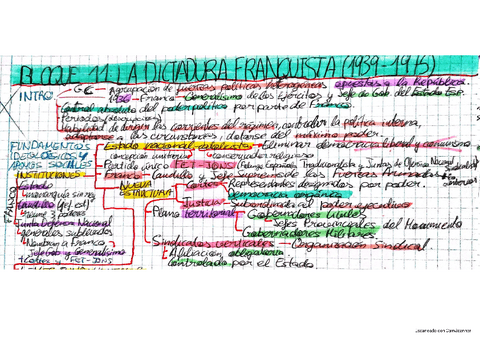 BLOQUE 11. LA DICTADURA FRANQUISTA (1939-1975)
INTRO. GC → Agrupación de fuerzas políticas heterogéneas opuestas a la República.
1936 → Franco → Generalísimo de los Ejércitos y Jefe de Gob. del Estado Esp.
Control absoluto del poder político por parte de Franco.
Periodos
habilidad de dirigir las corrientes del régimen, controlar la política interna,
adaptarse a las circunstancias, del máximo poder.
FUNDAMENTOS IDEOLÓGICOS Y APOYOS SOCIALES
Estado nacional → Eliminar democracia liberal y comunismo
concepción unitaria conservador religioso
Partido único FET-JONS (Falange Española Tradicionalista y Juntas de Ofensiva Nacional
INSTITUCIONES
Franco Caudillo y Jefe Supremo de las Fuerzas Armadas
FRANCO
Estado
NUEVA ESTRUCTURA
Cortes → Representantes designados por poder.
Democracia orgánica
Monarquía sin rey
Caudillo (Jef. est)
Justicia → Subordinada al poder ejecutivo
Reúne 3 poderes
Plano territorial
Gobernadores Civiles
Jefes provinciales del Movimiento
Junta Defensa Nacional
Gobernadores Militares.
Generales sublevados
Nombran a Franco
Sindicatos verticales → Organización Sindical.
Jefe Gob y Generalísimo
Afiliación obligatoria
Cortes y FET-JONS
controlado por el Estado
Escaneado con CamScanner